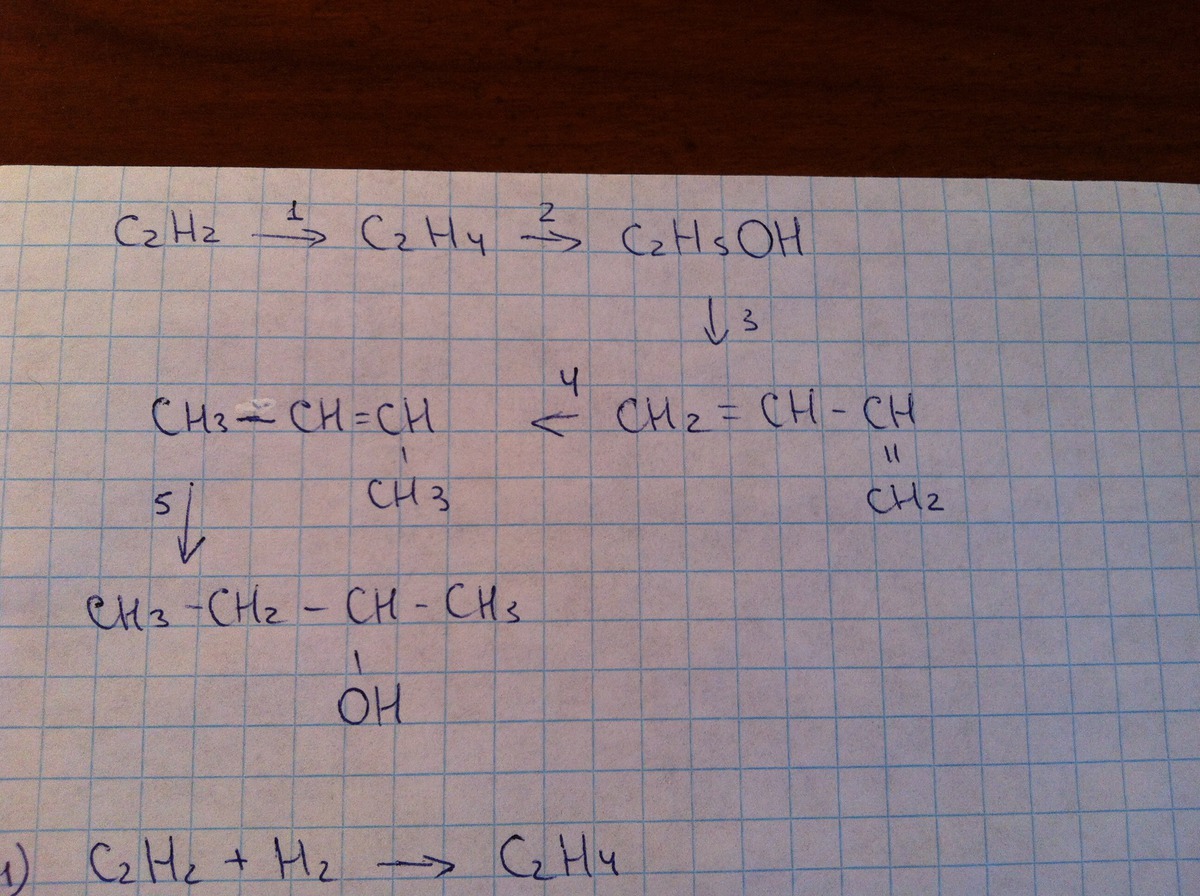 C2H2 →1 C2H4 →2 C2H5OH
↓ 3
CH3 – CH = CH ←4 CH2 = CH - CH
' "
5 ↓ CH3 CH2
CH3 - CH2 – CH - CH3
'
OH
1) C2H2 + H2 → C2H4